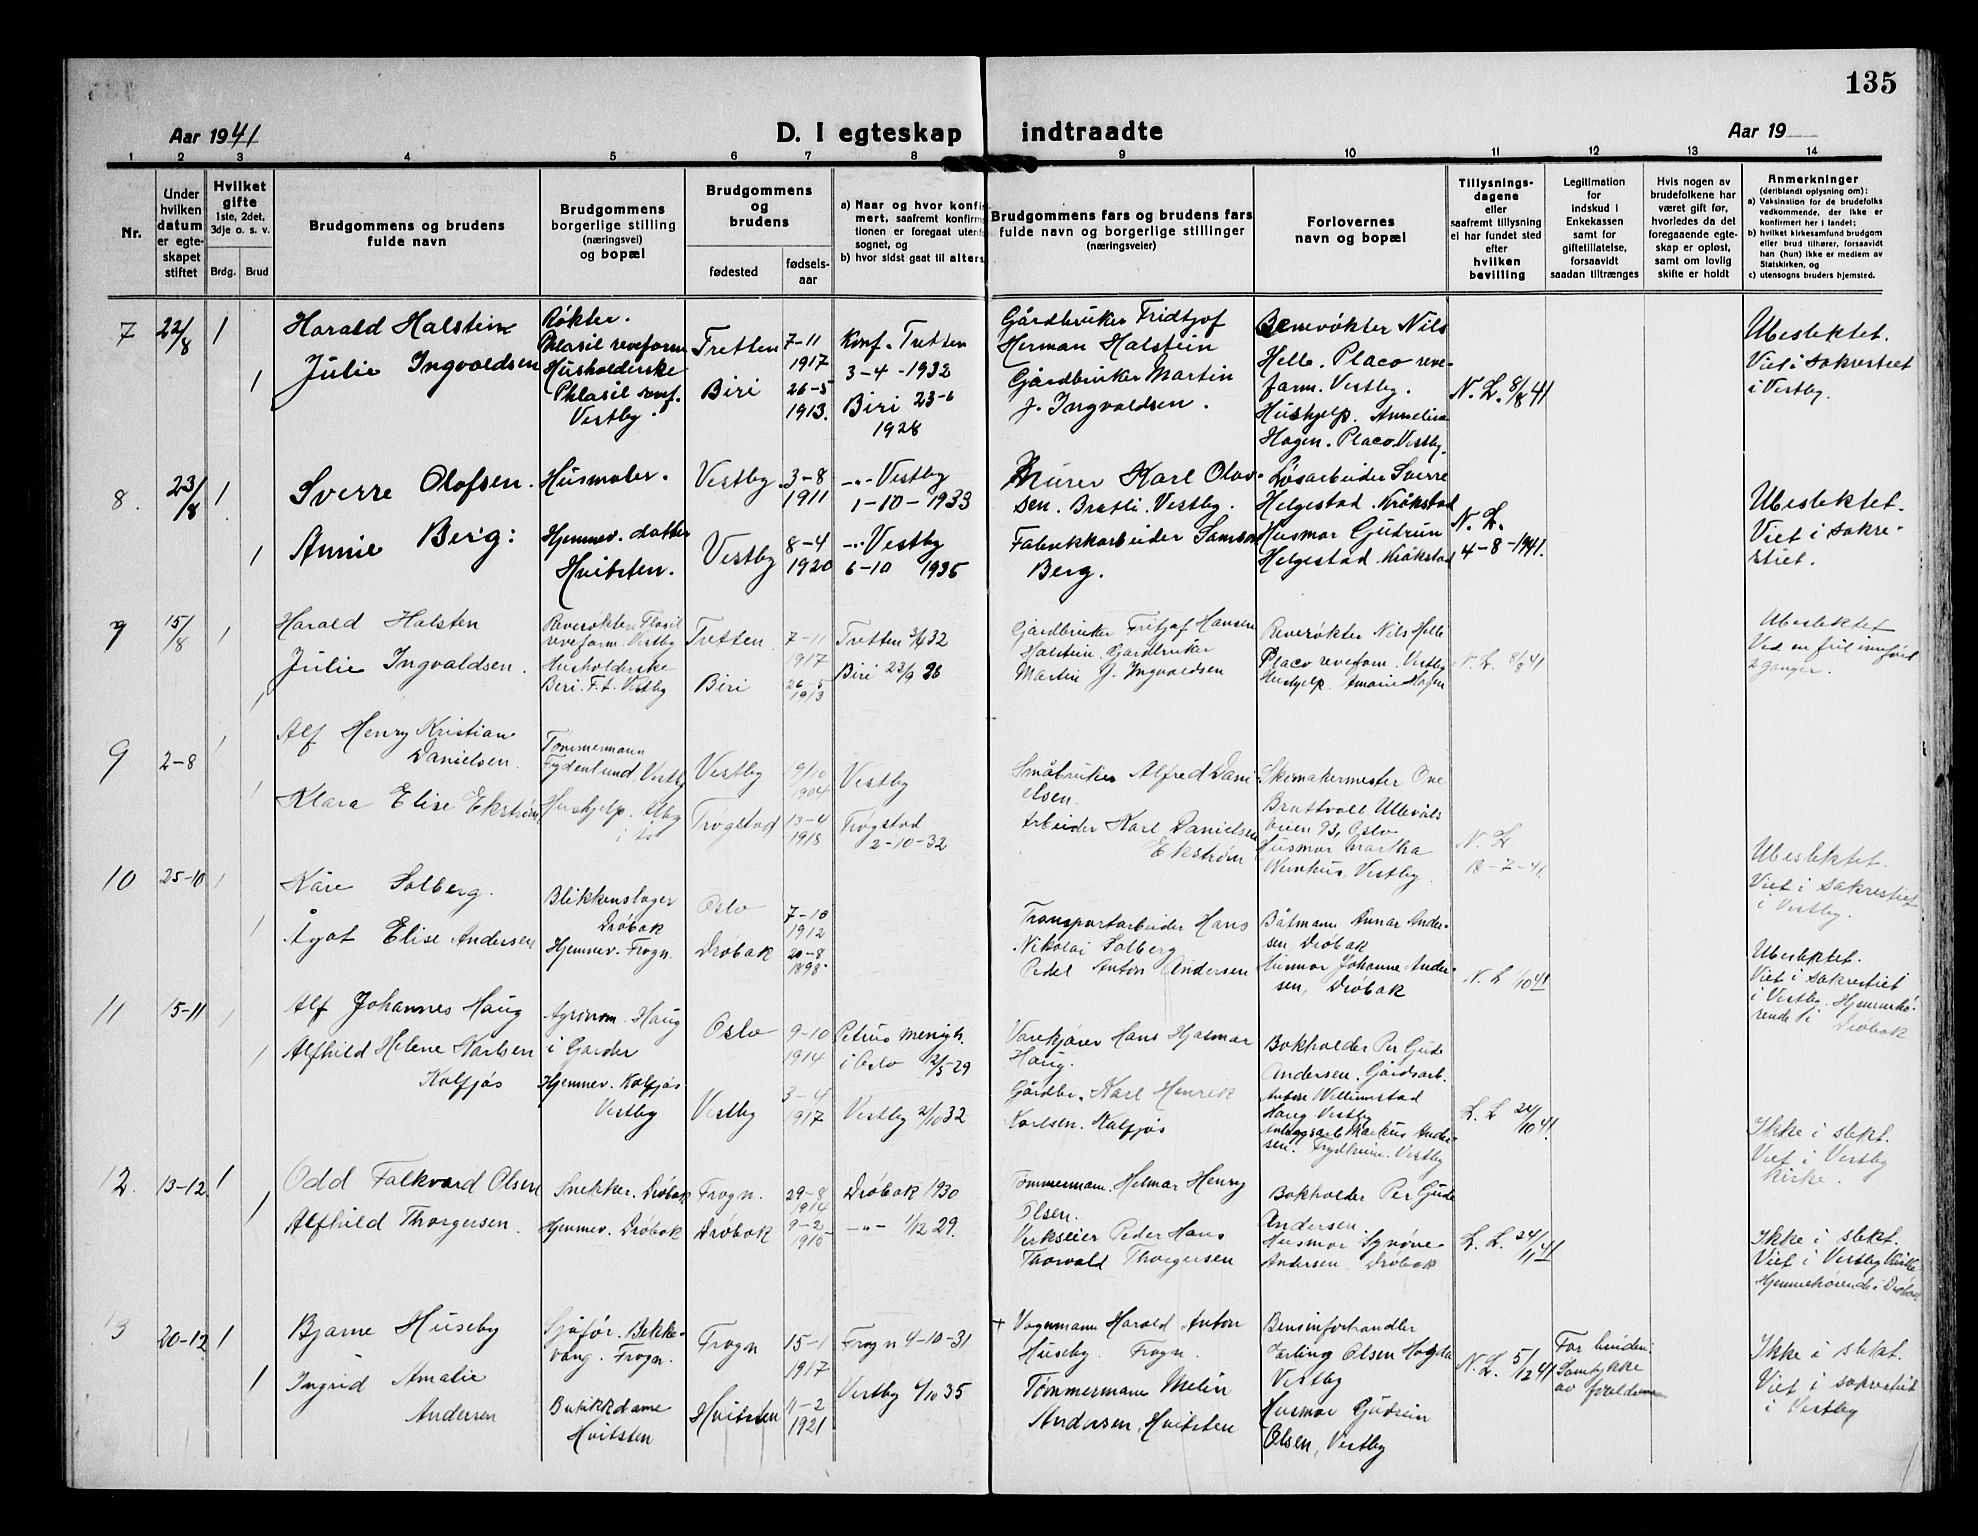 135
Aar 1941
D. I egteskap indtraadte
Aar 19
1 2 3 4 5 6 7 8 9 10 11 12 13 14
Nr.
Under
hvilken
datum
er egte-
skapet
stiftet
Hvilket
gifte
1ste, 2det,
3dje o. s. v.
Brdg.
Brud
Brudgommens og brudens
fulde navn
Brudgommens
borgerlige stilling
(næringsvei)
og bopæl
Brudgommens
og
brudens
fødested
fødsels-
aar
a) Naar og hvor konfir
mert, saafremt konfirm
tionen er foregaat utenf
sognet, og
b) hvor sidst gaat til alters
Brudgommens fars og brudens fars
fulde navn og borgerlige stillinger
(næringsveier)
Forlovernes
navn og bopæl
Tillysnings-
dagene
eller
saafremt tillysning
ei har fundet sted
efter
hvilken
bevilling
Legitimation
for
indskud i
Enkekassen
samt for
giftetillatelse,
forsaavidt
saadan tiltrænges
Hvis nogen av
brudefolkene har
været gift før,
hvorledes da det
foregaaende egte-
skap er opløst,
samt om lovlig
skifte er holdt
Anmerkninger
(deriblandt oplysning om):
a) Vaksination for de brudefolks
vedkommende, der ikke er
konfirmert her i landet;
b) hvilket kirkesamfund brudgom
eller brud tilhører, forsaavidt
han (hun) ikke er medlem av
Statskirken, og
c) utensogns bruders hjemsted.
7
22/8
1
1
Harald Halstein
Julie Ingvaldsen
Røkter.
Phlasil reveform
Husholderske
Phlasil revf.
Vestby.
Tretten
Biri
7-11
1917
26-5
1913.
Konf. Tretten
3-4-1932
Biri 23-6
1928
Gårdbruker Fridtjof
Herman Halstein
Gårdbruker Martin
J. Ingvaldsen.
Reverøkter Nils
Helle. Placo reve-
farm. Vestby.
Hushjelp. Annelisa
Hagen. Placo. Vestby.
N. L. 8/8 41
Ubeslektet.
Viet i sakrestiet
i Vestby.
8.
23/8
1
1
Sverre Olafsen.
Annie Berg:
Husmaler.
Hjemmev. datter
Hvitsten.
Vestby.
Vestby
3-8
1911
8-4
1920
-"- Vestby
1-10-1933
-"- Vestby
6-10 1935
Murer Karl Olav-
sen. Bratli. Vestby.
Fabrikkarbeider Samson
Berg.
Løsarbeider Sverre
Helgestad. Kråkstad
Husmor Gudrun
Helgestad. Kråkstad
N. L.
4-8-1941.
Ubeslektet.
Viet i sakre-
stiet.
9
15/8
1
1
Harald Halsten
Julie Ingvaldsen.
Reverøkter Flasil
reveform Vestby
Husholderske
Beri. F.t. Vestby
Tretten.
Biri
7-11
1917
26-5
1913
Tretten 3/4 32
Biri 23/9 26
Gårdbruker Fritjof Hansen
Halstein. Gardbruker
Martin J. Ingvaldsen
Reverøkter Nils Helle
Placo reveform. Vestby
Hushjelp. Hagen
N. L. 8/8 41
Ubeslektet
Ved en feil innført
2 ganger.
9
2-8
1
1
Alf Henry Kristian
Danielsen.
Klara Elise Ekstrøm
Tømmermann
Vestby
Hushjelp.
Vestby
Trøgstad
9/10
1904
13-4
1918
Vestby
Trøgstad
2-10-32
Småbruker Alfred Dani-
elsen.
Arbeider Karl Danielsen
Ekstrøm
Skomakermester Ove
Brattvoll Ullevåls
veien 93, Oslo
Husmor Martha
Vestby.
N. L
18-7-41.
Ubeslektet.
Viet i sakrestiet
i Vestby.
10
25-10
1
1
Kåre Solberg.
Ågot Elise Andersen
Blikkenslager
Drøbak
Hjemmev. Frogn.
Oslo
Drøbak
7-10
1912
20-8
1898.
Transportarbeider Hans
Nikolai Solberg
Pedel Anton Andersen
Båtmann Annar Ander-
sen Drøbak
Husmor Johanne Ander-
sen, Drøbak
N. L /10 41
Ubeslektet.
Viet i sakrestiet
i Vestby. Hjemmehø-
rende i Drøbak
11
15-11
1
1
Alf Johannes Haug
Alfhild Helene Karlsen
Kolfjøs
Agronom. Haug
i Garder
Hjemmev. Kolfjøs
Vestby
Oslo
Vestby
9-10
1914
3-4
1917
Petrus menigh.
i Oslo 2/5-29
Vestby 2/10 32
Varekjører Hans Hjalmar
Haug.
Gårdbr. Karl Henrik
Karlsen. Kolfjøs
Bokholder Per Gude
Andersen. Gårdsarb.
Haug Vestby
Markus Ander-
sen. Frydheim. Vestby
L. L 24/10 41.
Ikke i slekt.
Viet i Vestby
kirke.
12
13-12
1
1
Odd Falkvard Olsen
Alfhild Thorgersen.
Snekker. Drøbak
Hjemmev. Drøbak
Frogn.
Drøbak
29-8
1914
9-2
1915
Drøbak 1930
-"- 1/12 29.
Tømmermann. Helmar Henry
Olsen.
Verkseier Peder Hans
Thorvald Thorgersen
Bokholder Per Gude
Andersen.
Husmor Synøve
Andersen Drøbak
L. L. 24/11 41
Ikke i slekt.
Viet i Vestby kirke
Hjemmehørende i Drøbak
13
20-12
1
1
Bjarne Huseby
Ingrid Amalie
Andersen
Sjåfør. Bekke-
vang. Frogn.
Butikkdame
Hvitsten
Frogn
Hvitsten
15-1
1917
11-2
1921
Frogn 4-10-31
Vestby 6/10 35
+ Vognmann Harald Anton
Huseby. Frogn.
Tømmermann Melin
Andersen, Hvitsten
Bensinforhandler
Olsen
Vestby
Husmor Gudrun
Olsen, Vestby
N. L. 5/12 41
For bruden:
Samtykke
av foreldrene
Ikke i slekt.
Viet i sakrestiet
i Vestby